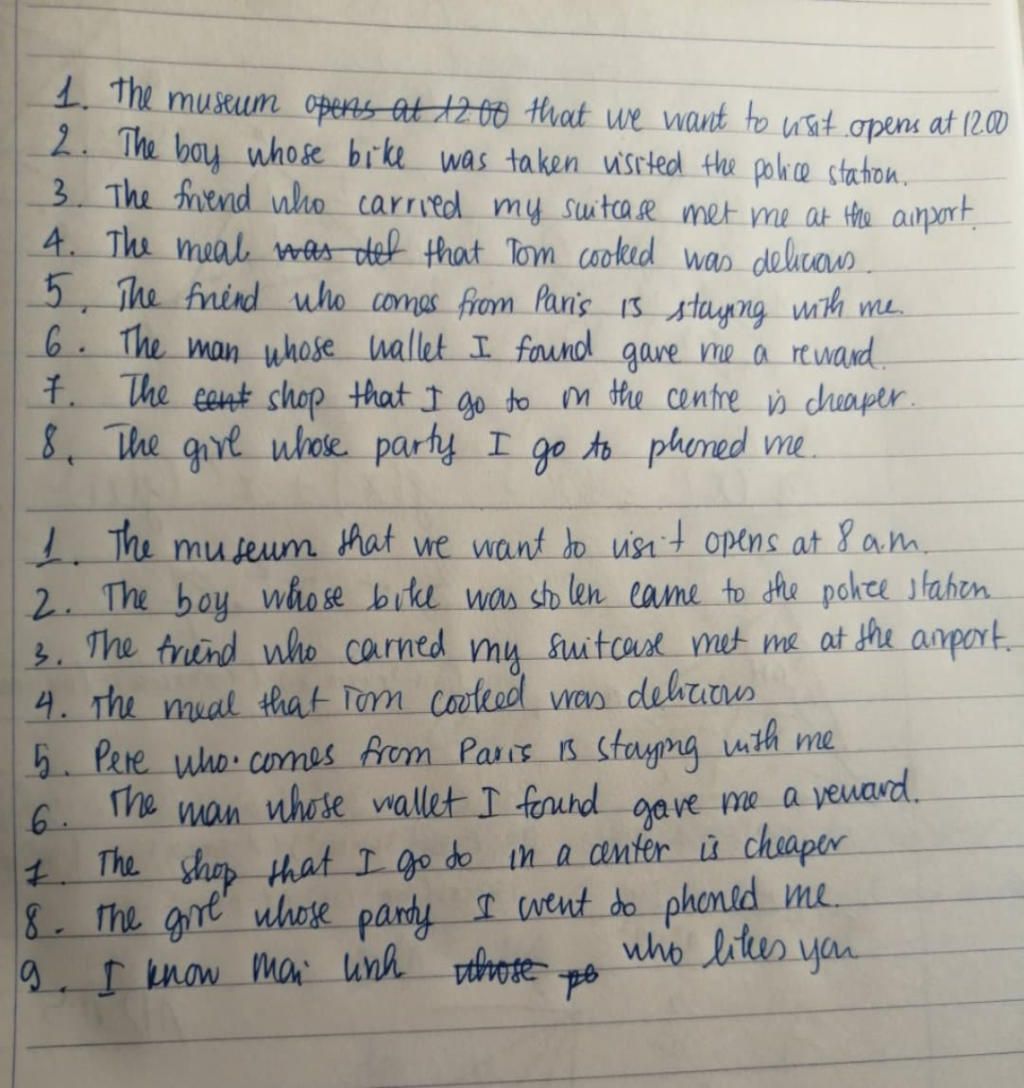 1. The museum opens at 12.00 that we want to visit opens at 12.00
2. The boy whose bike was taken visited the police station.
3. The friend who carried my suitcase met me at the airport.
4. The meal was del that Tom cooked was delicious.
5. The friend who comes from Paris is staying with me.
6. The man whose wallet I found gave me a reward.
7. The cent shop that I go to in the centre is cheaper.
8. The girl whose party I go to phoned me.
1. The museum that we want to visit opens at 8 a.m.
2. The boy whose bike was stolen came to the police station
3. The friend who carried my suitcase met me at the airport.
4. The meal that Tom cooked was delicious
5. Pere who comes from Paris is staying with me
6. The man whose wallet I found gave me a reward.
7. The shop that I go to in a center is cheaper
8. The girl whose party I went to phoned me.
9. I know Mai Linh whose pe who likes you